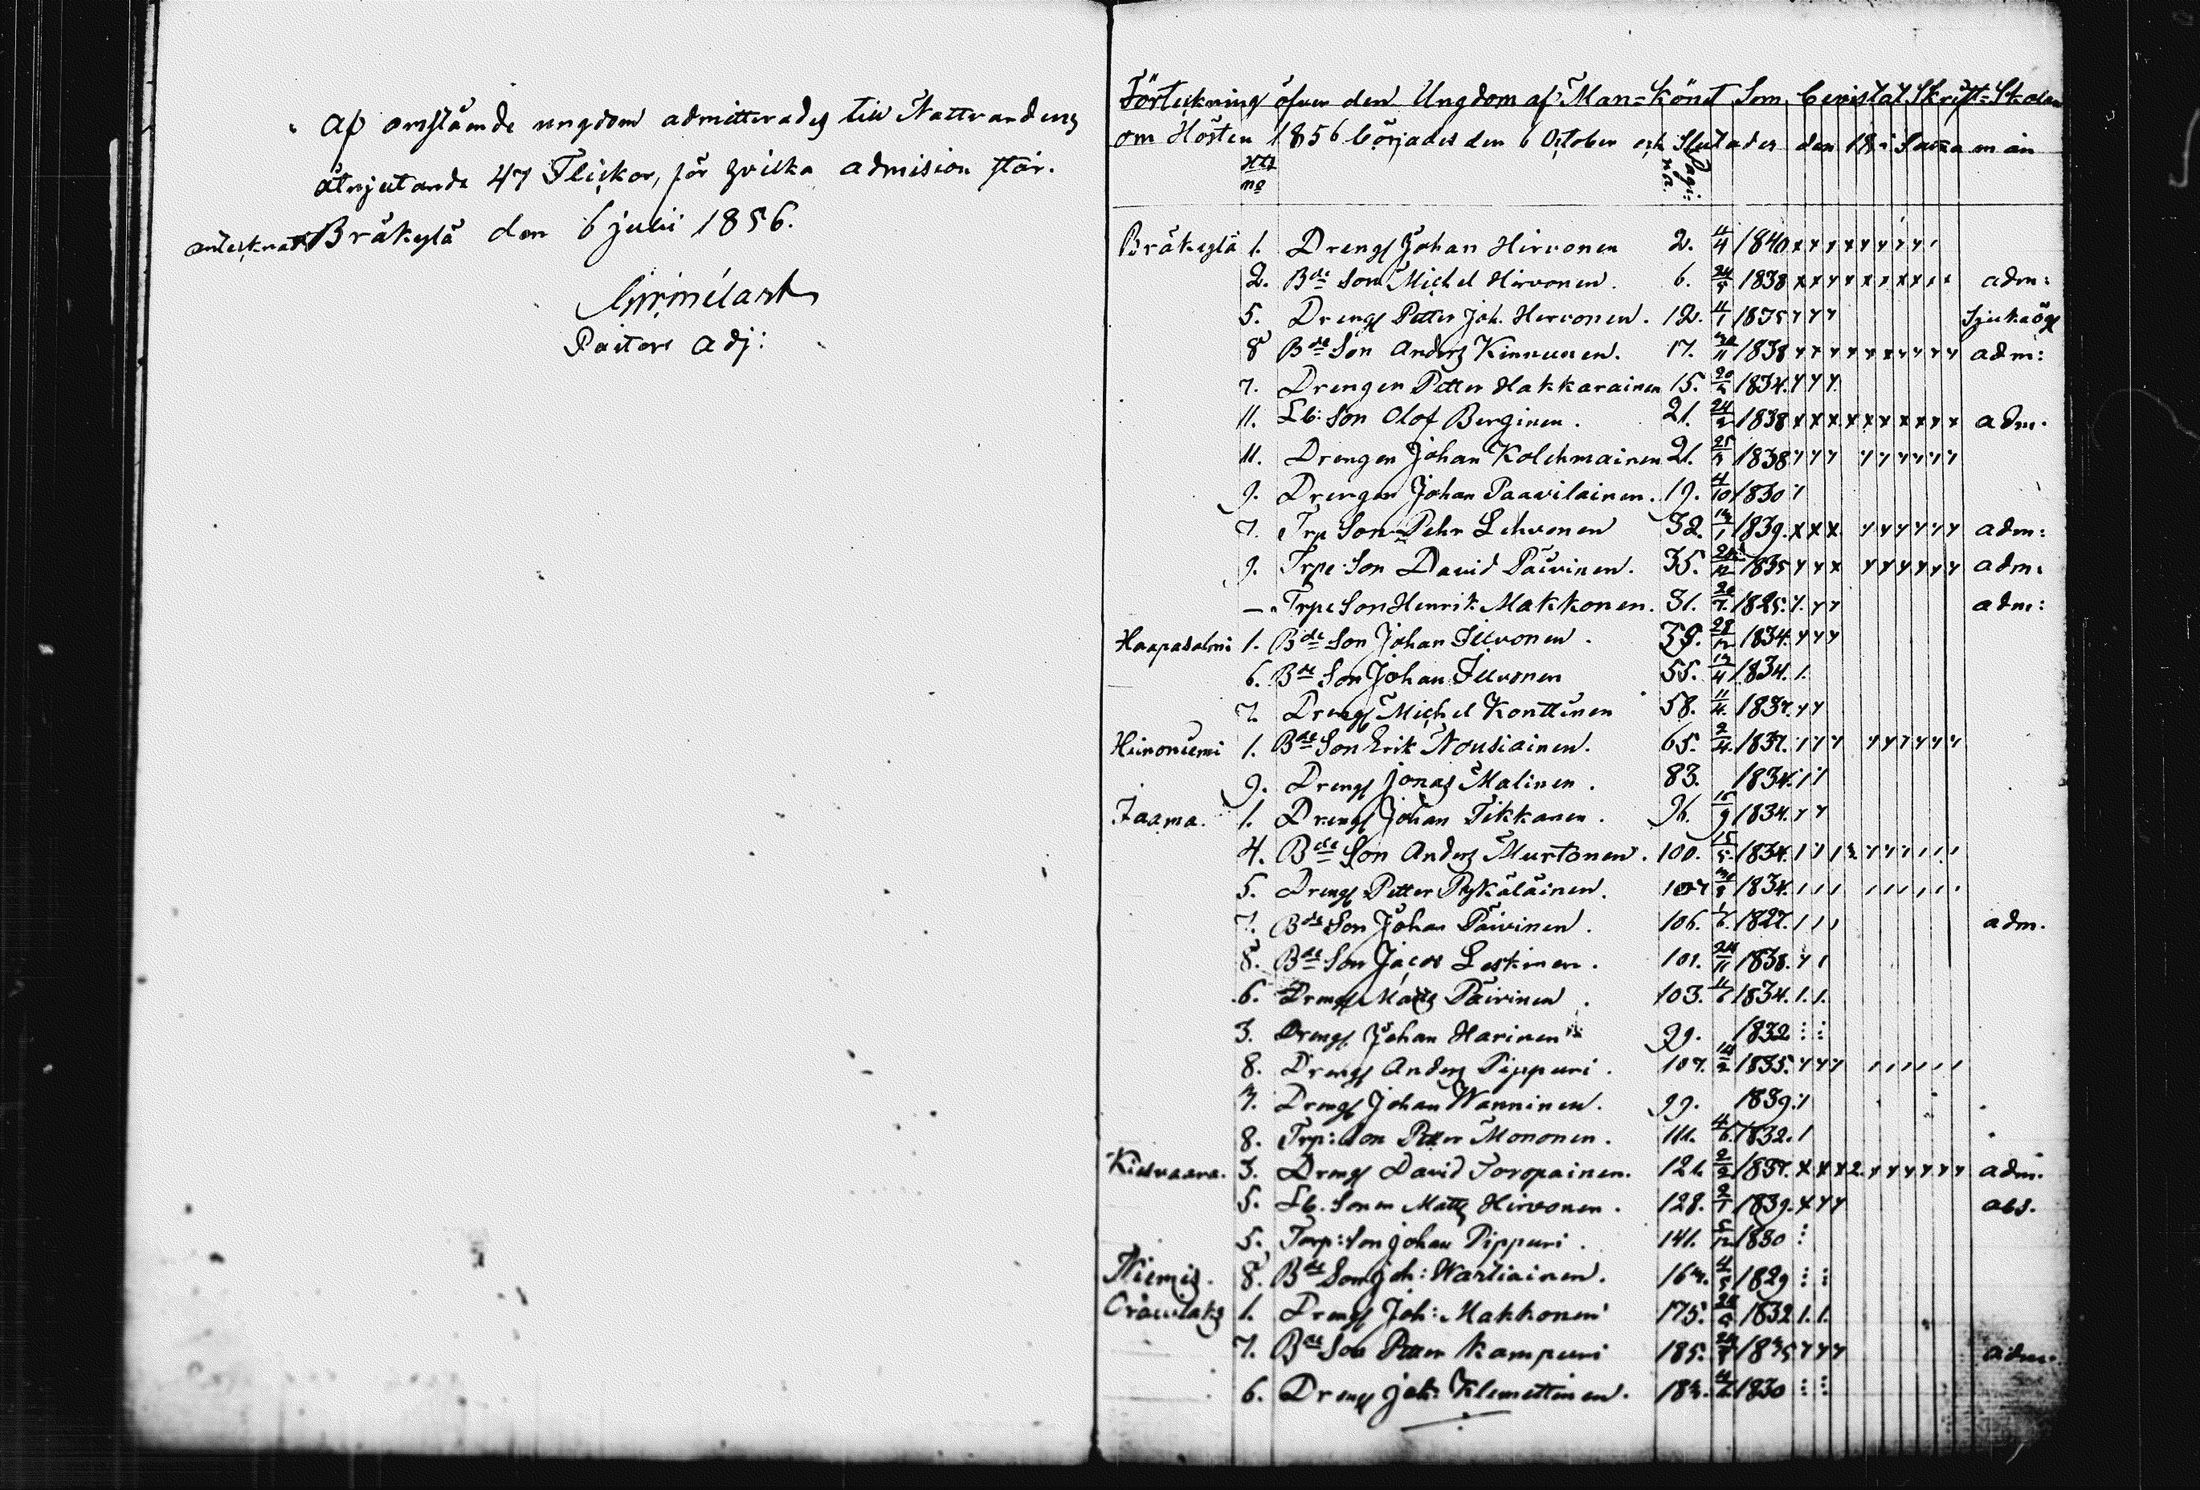 Af omstående ungdom admitterades till Nattvardens
åtnjutande 47 Flickor, för hvilka admision står.
antecknat Bräkylä den 6 juli 1856.
Pastors Adj:
Förteckning öfver den Ungdom af Man-Könet Som bevistat Skrift-Skolan
om Hösten 1856 börjades den 6 October och Slutades den 18 i Samma mån
Hts no Pagi: na.
Bräkylä 1. Dreng Johan Hirvonen 2. 11/4 1840
2. Bde Son Michel Hirvonen. 6. 24/5 1838 adm:
5. Dreng Petter Joh. Hirvonen. 12. 11/1 1835
8 Bde Son Anders Kinnunen. 17. 30/11 1838 adm:
7. Drengen Petter Hakkarainen 15. 1834.
11. Lb: Son Olof Berginen. 21. 24/2 1838 adm.
11. Drengen Johan Kolehmainen 21. 1838
9. Drengen Johan Paavilainen. 19. 4/10 1830
7. Trp Son Pehr Lehvonen 32. 1839. adm:
9. Trpe: Son David Päivinen. 35. 1835 adm:
—. Trpe Son Henrik Makkonen. 31. 1825. adm:
Haapasalmi 1. Bde Son Johan Silvonen. 39. 28/12 1834.
6. Bde Son Johan Silvonen 55. 1834.
7. Dreng Michel Konttinen 58. 11/4. 1837.
Heinoniemi 1. Bde Son Erik Nousiainen. 65. 2/4. 1837.
9. Dreng Jonas Malinen. 83. 1834.
Jaama. 1. Dreng Johan Tikkanen. 96. 1834.
4. Bde Son Anders Murtonen. 100. 15/5. 1834.
5. Dreng Petter Pykäläinen. 1834.
7. Bde Son Johan Päivinen. 106. 1/6. 1827. adm.
8. Bde Son Jacob Leskinen. 24/11 1838.
6. Dreng Matts Päivinen. 103. 1834.
3. Dreng Johan Harinen 99. 1832
8. Dreng Anders Pippuri. 107. 1835.
3. Dreng Johan Wanninen. 99. 1839.
8. Trp: Son Petter Mononen. 111. 4/6. 1832.
Kiesvaara. 3. Dreng David Toropainen. 121. 2/2 1837. adm.
5. Lb. Sonen Matts Hirvonen. 128. 1839. abs.
5. Torp: Son Johan Pippuri. 141. 5/12 1830
Niemis. 8. Bde Son Joh: Wartiainen. 1829
Oravilaks 1. Dreng Joh: Makkonen 175. 1832
7. Bde Son Petter Kampuri 185. 1835 adm.
6. Dreng Joh: Klemettinen. 1830